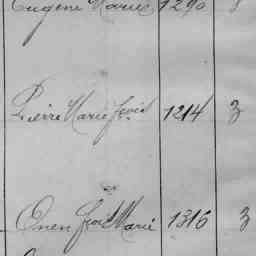 Eugene Marie 1290
Pierre Marie 1214 3
Onen Marie 1316 3